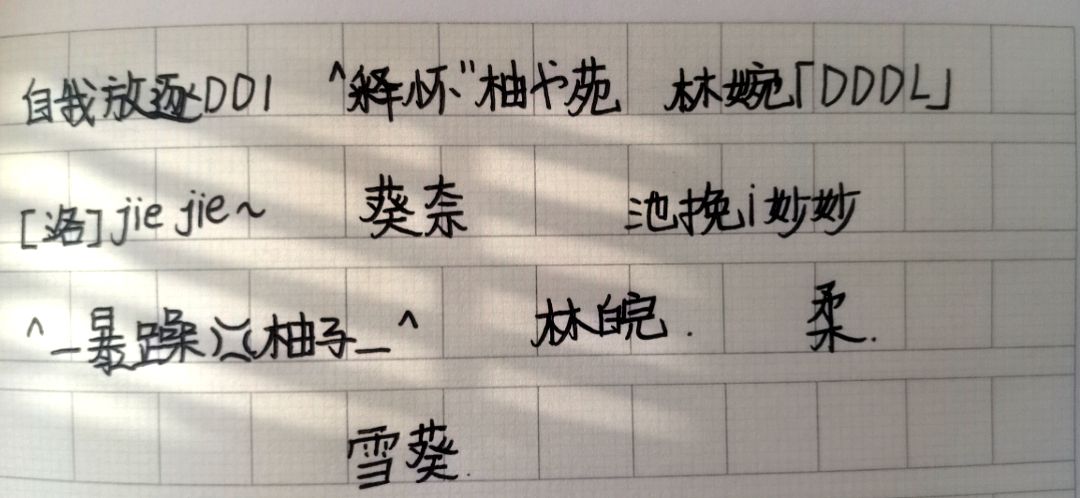 自我放逐DD1 ^释怀"柚书苑 林婉「DDDL」
[洛]jie jie~ 葵奈 池挽i妙妙
^_暴躁柚子_^ 林皖. 柔.
雪葵.